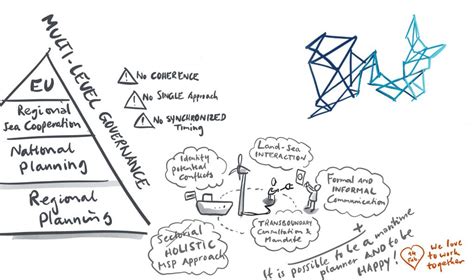 MULTI-LEVEL GOVERNANCE
EU
Regional
Sea Cooperation
National
Planning
Regional
Planning
No COHERENCE
No SINGLE Approach
No SYNCHRONIZED
Timing
Identity
Potential
Conflicts
Land-Sea
INTERACTION
Formal AND
INFORMAL
Communication
TRANSBOUNDARY
Consultation &
Mandate
Sectorial
HOLISTIC
MSP Approach
It is possible to be a maritime
planner AND to be
HAPPY!
14
Feb
We love
to work
together